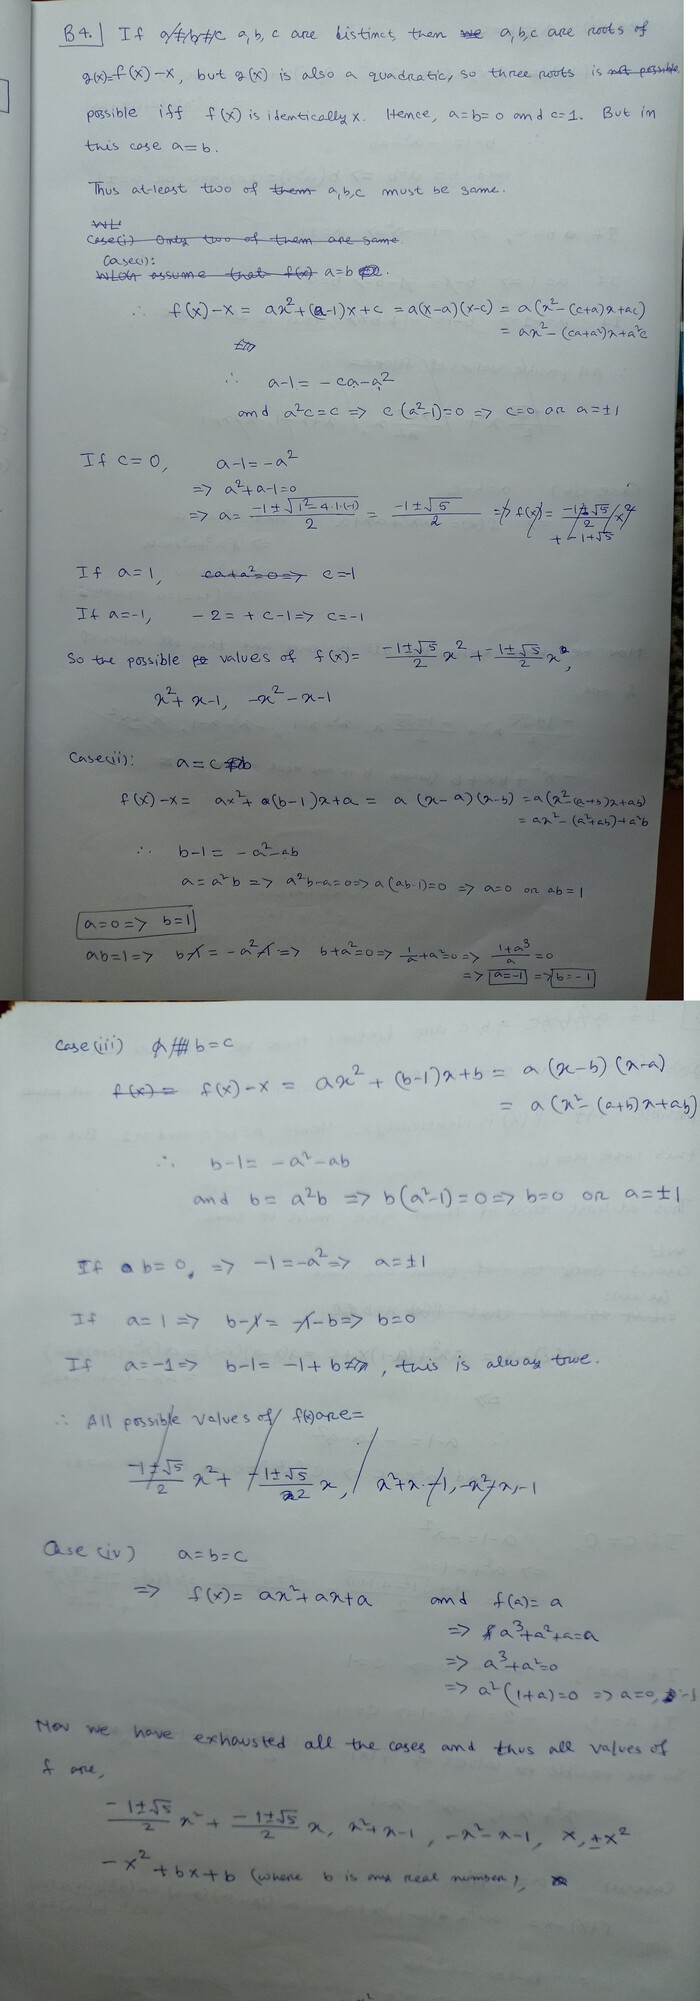 B4. If a, b, c are distinct, then a, b, c are roots of
g(x)=f(x)-x, but g(x) is also a quadratic, so three roots is
possible iff f(x) is identically x. Hence, a=b=0 and c=1. But in
this case a=b.
Thus at-least two of a,b,c must be same.
Case(i) Only two of them are same.
Case(i):
WLOG assume that f(x) a=b
∴ f(x)-x = ax²+(a-1)x+c = a(x-a)(x-c) = a(x²-(c+a)x+ac)
= ax²-(ca+a²)x+a²c
∴ a-1 = -ca-a²
and a²c=c => c(a²-1)=0 => c=0 or a=±1
If c=0, a-1=-a²
=> a²+a-1=0
=> a = (-1±√(1²-4·1·(-1)))/2 = (-1±√5)/2 => f(x) = (-1±√5)/2 x²
+ -1+√5
If a=1, ca+a²=0=> c=-1
If a=-1, -2=+c-1=> c=-1
So the possible values of f(x)= (-1±√5)/2 x² + (-1±√5)/2 x,
x²+x-1, -x²-x-1
Case(ii): a=c
f(x)-x= ax²+(b-1)x+a = a(x-a)(x-b) =a(x²-(a+b)x+ab)
= ax²-(a²+ab)+a²b
∴ b-1 = -a²-ab
a=a²b => a²b-a=0=> a(ab-1)=0 => a=0 or ab=1
a=0=> b=1
ab=1=> b-1 = -a²-1=> b+a²=0=> 1/a+a²=0=> (1+a³)/a=0
=> a=-1 => b=-1
Case(iii) b=c
f(x)= f(x)-x = ax²+(b-1)x+b = a(x-b)(x-a)
= a(x²-(a+b)x+ab)
∴ b-1= -a²-ab
and b=a²b => b(a²-1)=0=> b=0 or a=±1
If b=0, => -1=-a²=> a=±1
If a=1=> b-1= -1-b=> b=0
If a=-1=> b-1= -1+b, this is always true.
∴ All possible values of f(x) are=
(-1±√5)/2 x²+ (-1±√5)/2 x, x²+x-1, -x²-x-1
Case (iv) a=b=c
=> f(x)= ax²+ax+a and f(a)=a
=> a³+a²+a=a
=> a³+a²=0
=> a²(1+a)=0 => a=0, -1
Now we have exhausted all the cases and thus all values of
f are,
(-1±√5)/2 x²+ (-1±√5)/2 x, x²+x-1, -x²-x-1, x, ±x²
-x²+bx+b (where b is real number),